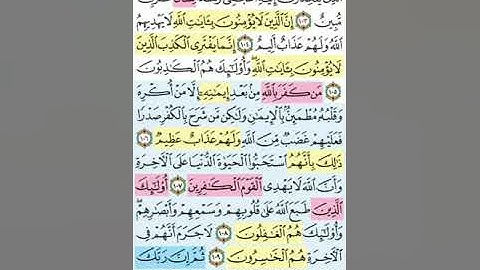 مُّبِينٌ ١٠٣ إِنَّ ٱلَّذِينَ لَا يُؤْمِنُونَ بِـَٔايَٰتِ ٱللَّهِ لَا يَهْدِيهِمُ
ٱللَّهُ وَلَهُمْ عَذَابٌ أَلِيمٌ ١٠٤ إِنَّمَا يَفْتَرِى ٱلْكَذِبَ ٱلَّذِينَ
لَا يُؤْمِنُونَ بِـَٔايَٰتِ ٱللَّهِ ۖ وَأُو۟لَٰٓئِكَ هُمُ ٱلْكَٰذِبُونَ
١٠٥ مَن كَفَرَ بِٱللَّهِ مِنۢ بَعْدِ إِيمَٰنِهِۦٓ إِلَّا مَنْ أُكْرِهَ
وَقَلْبُهُۥ مُطْمَئِنٌّۢ بِٱلْإِيمَٰنِ وَلَٰكِن مَّن شَرَحَ بِٱلْكُفْرِ صَدْرًا
فَعَلَيْهِمْ غَضَبٌ مِّنَ ٱللَّهِ وَلَهُمْ عَذَابٌ عَظِيمٌ ١٠٦
ذَٰلِكَ بِأَنَّهُمُ ٱسْتَحَبُّوا۟ ٱلْحَيَوٰةَ ٱلدُّنْيَا عَلَى ٱلْـَٔاخِرَةِ
وَأَنَّ ٱللَّهَ لَا يَهْدِى ٱلْقَوْمَ ٱلْكَٰفِرِينَ ١٠٧ أُو۟لَٰٓئِكَ
ٱلَّذِينَ طَبَعَ ٱللَّهُ عَلَىٰ قُلُوبِهِمْ وَسَمْعِهِمْ وَأَبْصَٰرِهِمْ ۖ
وَأُو۟لَٰٓئِكَ هُمُ ٱلْغَٰفِلُونَ ١٠٨ لَا جَرَمَ أَنَّهُمْ فِى
ٱلْـَٔاخِرَةِ هُمُ ٱلْخَٰسِرُونَ ١٠٩ ثُمَّ إِنَّ رَبَّكَ